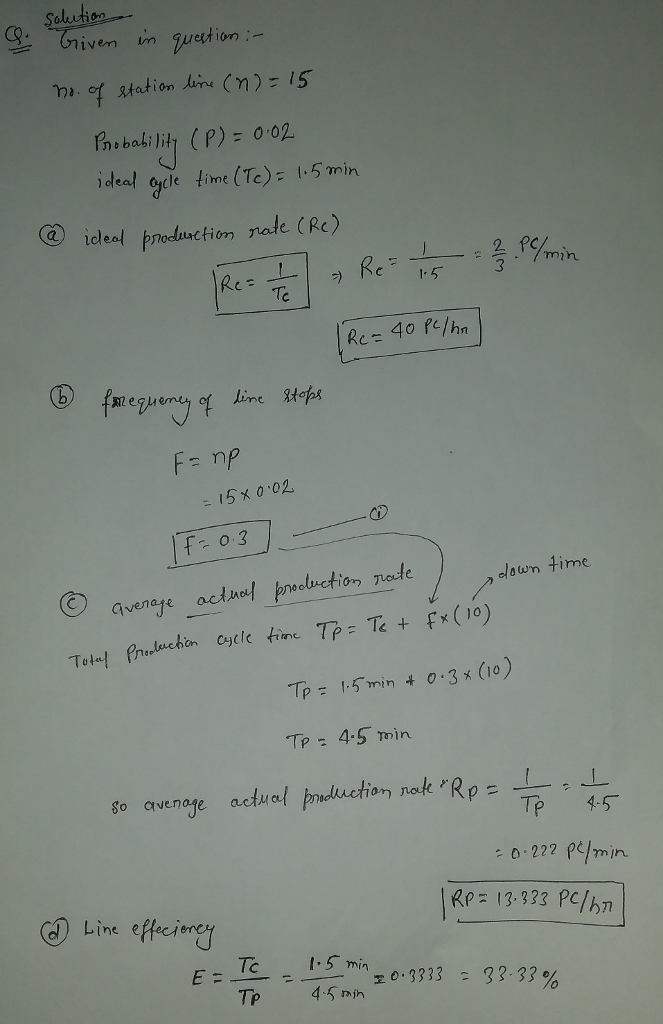 Solution
Q. Given in question :-
no. of station line (n) = 15
Probability (P) = 0.02
ideal cycle time (Tc) = 1.5 min
(a) ideal production rate (Rc)
Rc = 1/Tc ⇒ Rc = 1/1.5 = 2/3 . PC/min
Rc = 40 PC/hr
(b) frequency of line stops
F = np
= 15 x 0.02
F = 0.3 ①
(c) average actual production rate
down time
Total Production cycle time Tp = Tc + f x (10)
Tp = 1.5 min + 0.3 x (10)
Tp = 4.5 min
so average actual production rate Rp = 1/Tp = 1/4.5
= 0.222 PC/min
RP = 13.333 PC/hr
(d) Line effeciency
E = Tc/Tp = 1.5 min/4.5 min = 0.3333 = 33.33 %